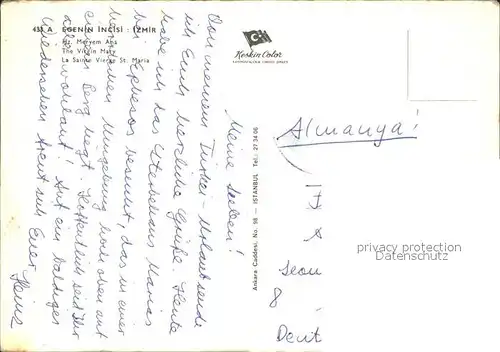 433 A   EGENİN İNCİSİ : İZMİR
Hz. Meryem Ana
The Virgin Mary
La Sainte Vierge St. Maria
Keskin Color
Ankara Caddesi, No. 98 — ISTANBUL Tel.: 27 34 06
Meine Lieben!
Von meinem Türkei-Urlaub sende
ich Euch herzliche Grüße. Heute
habe ich das Sterbehaus Marias
bei Ephesos besucht, das in einer
herrlichen Umgebung hoch oben auf
einem Berg liegt. Hoffentlich seid Ihr
alle wohlauf! Auf ein baldiges
Wiedersehen freut sich Euer Heinz
Almanya!
8
privacy protection
www.ansichtskarten-center.de